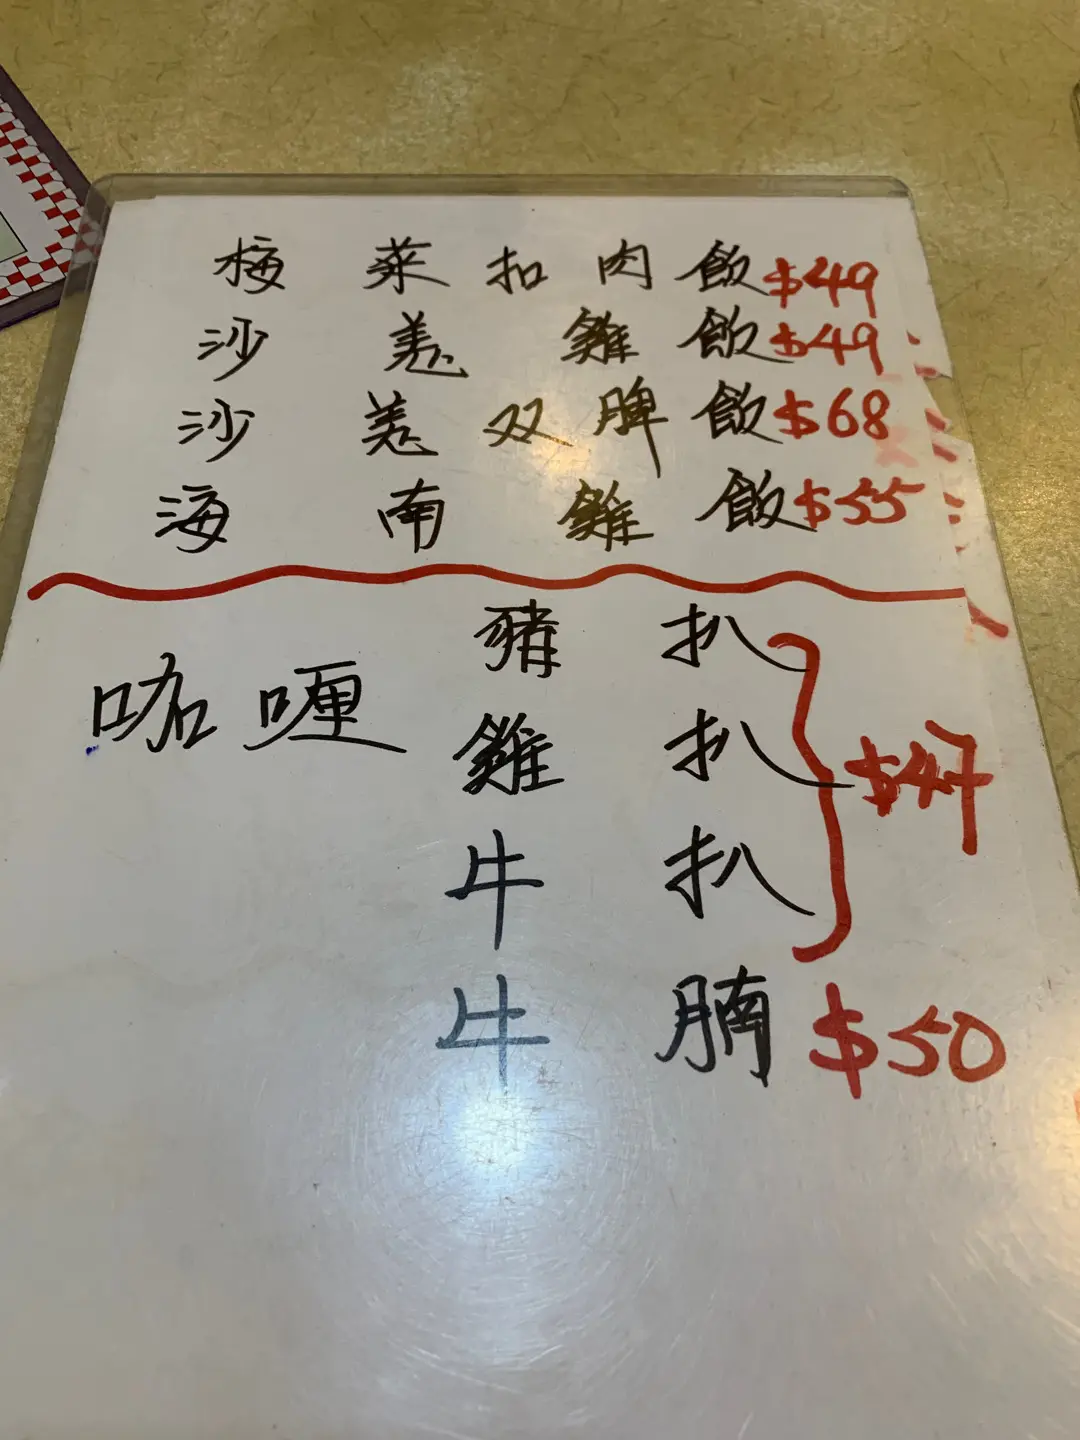 梅菜扣肉飯 $49
沙羗雞飯 $49
沙羗双脾飯 $68
海南雞飯 $55
咖喱 豬扒
雞扒 $47
牛扒
牛腩 $50